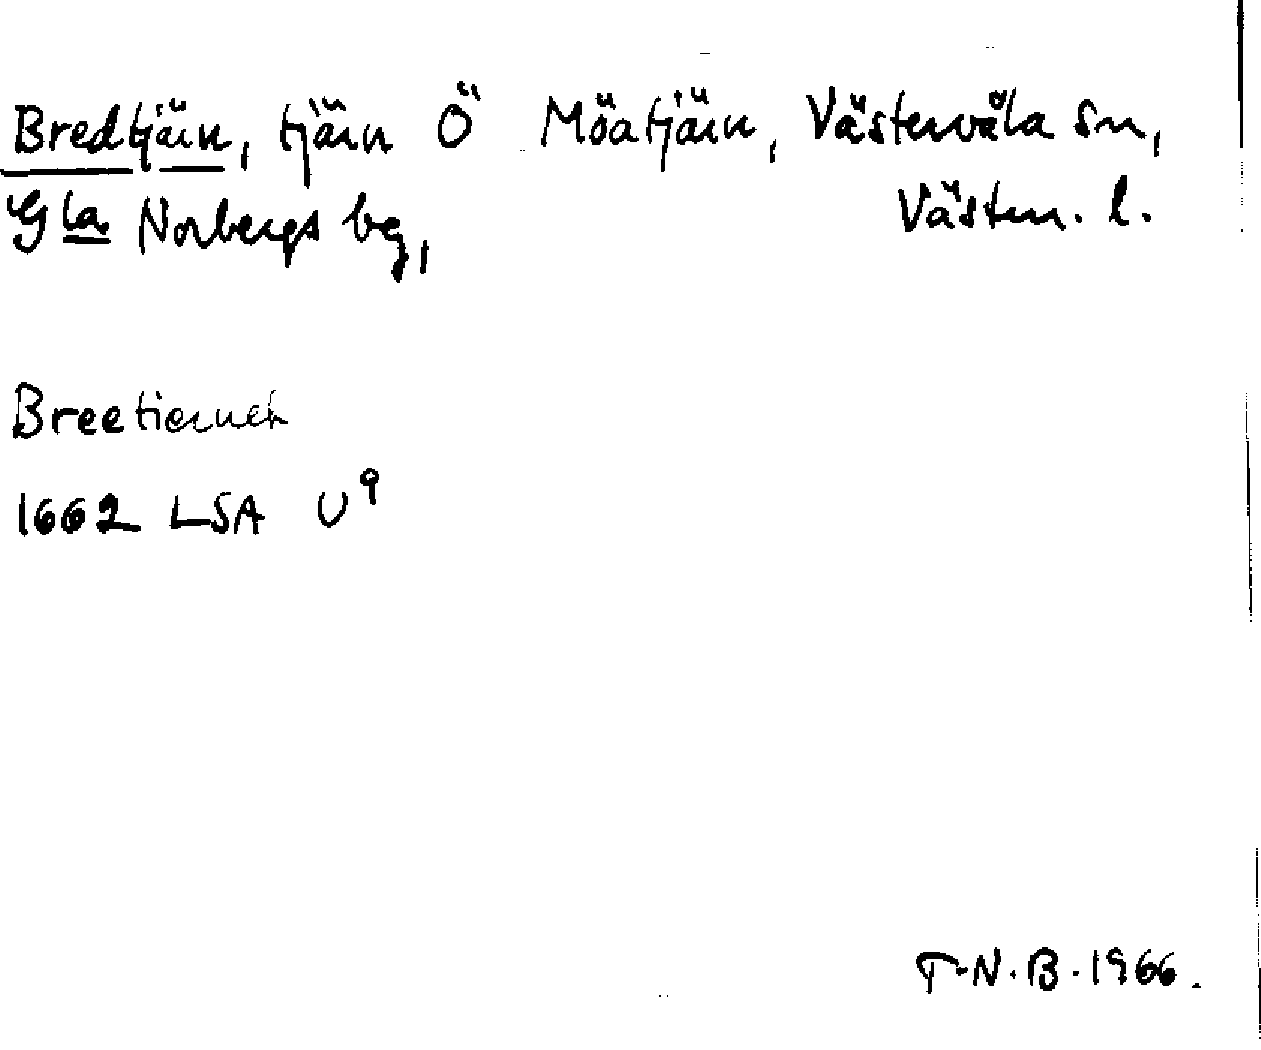 Bredtjärn, tjärn Ö Möatjärn, Västervåla sn,
Gla Norbergs bg, Västm. l.
Breetiernen
1662 LSA U9
T.N.B. 1966.